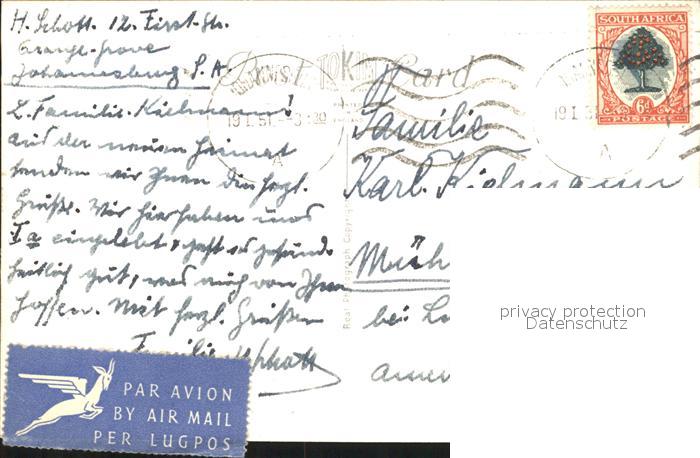 H. Schott. 12. First-Str.
Orange-Grove
Johannesburg. S. A.
Post Card
19 I 51
A
SOUTH AFRICA
6d
POSTAGE
19 I 51
A
L. Familie Kielmann!
aus der neuen Heimat
senden wir Ihnen die herzl.
Grüße. Wir hier haben uns
Ia eingelebt & geht es gesund-
heitlich gut, was auch von Ihnen
hoffen. Mit herzl. Grüßen
Familie Schott
Familie
Karl. Kielmann
Müh
bei
Real Photograph Copyright
privacy protection
Datenschutz
PAR AVION
BY AIR MAIL
PER LUGPOS